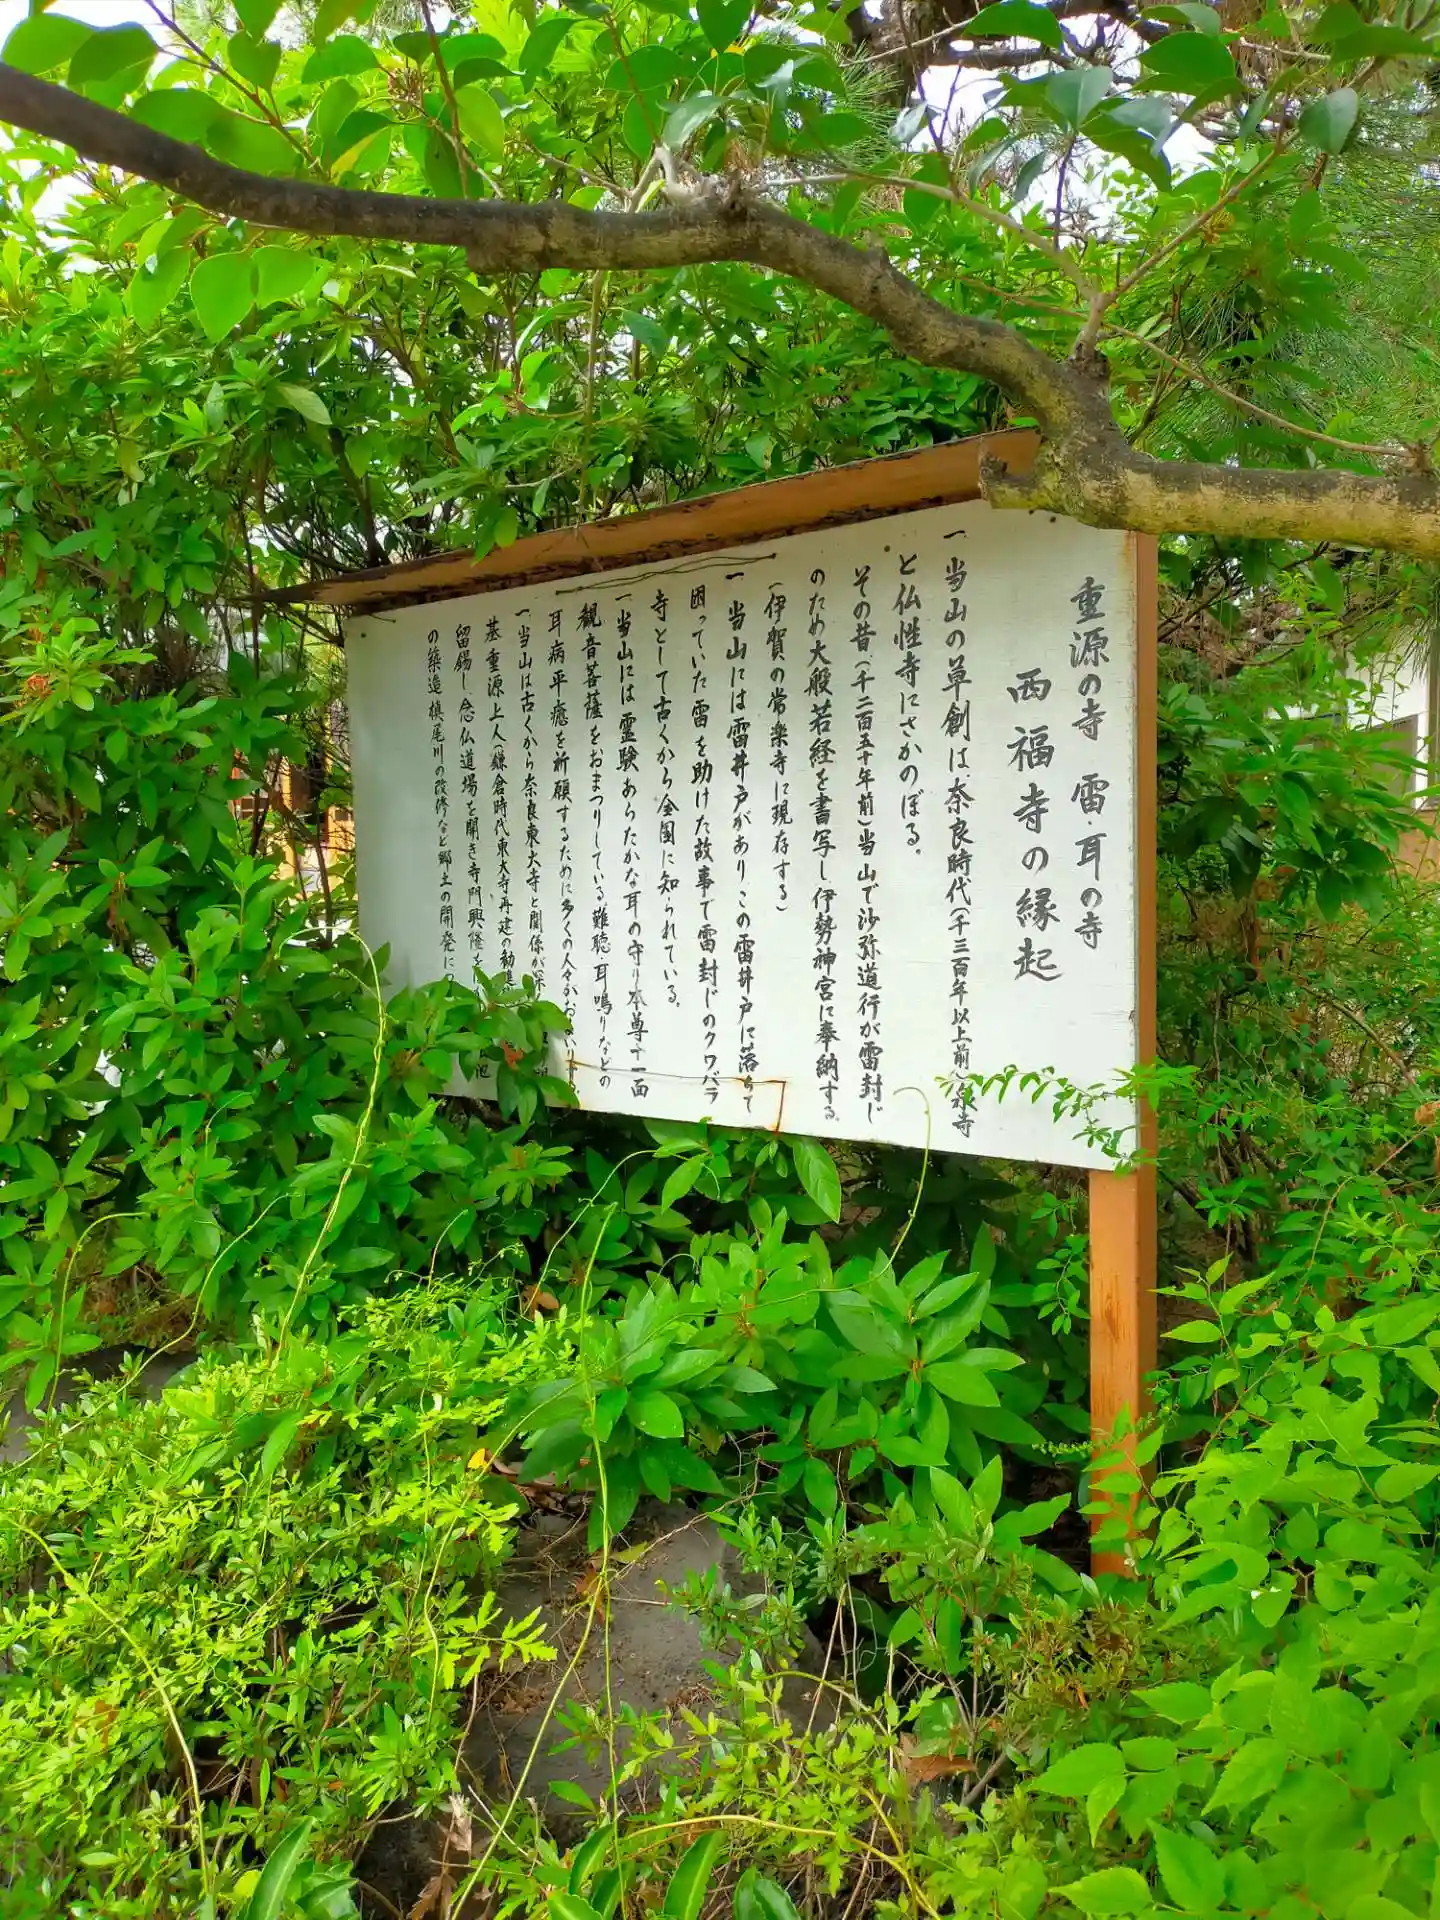 重源の寺 雷・耳の寺
西福寺の縁起
一 当山の草創は、奈良時代(千三百年以上前)泉寺
と仏性寺にさかのぼる。
その昔(千二百五十年前)当山で沙弥道行が雷封じ
のため大般若経を書写し、伊勢神宮に奉納する。
(伊賀の常楽寺に現存する)
一 当山には雷井戸があり、この雷井戸に落ちて
困っていた雷を助けた故事で雷封じのクワバラ
寺として古くから全国に知られている。
一 当山には霊験あらたかな耳の守り本尊十一面
観音菩薩をおまつりしている。難聴、耳鳴りなどの
耳病平癒を祈願するために多くの人々がおまいりする
一 当山は古くから奈良東大寺と関係が深
基重源上人(鎌倉時代東大寺再建の勧進
留錫し、念仏道場を開き寺門興隆を 池
の築造、槇尾川の改修など郷土の開発に